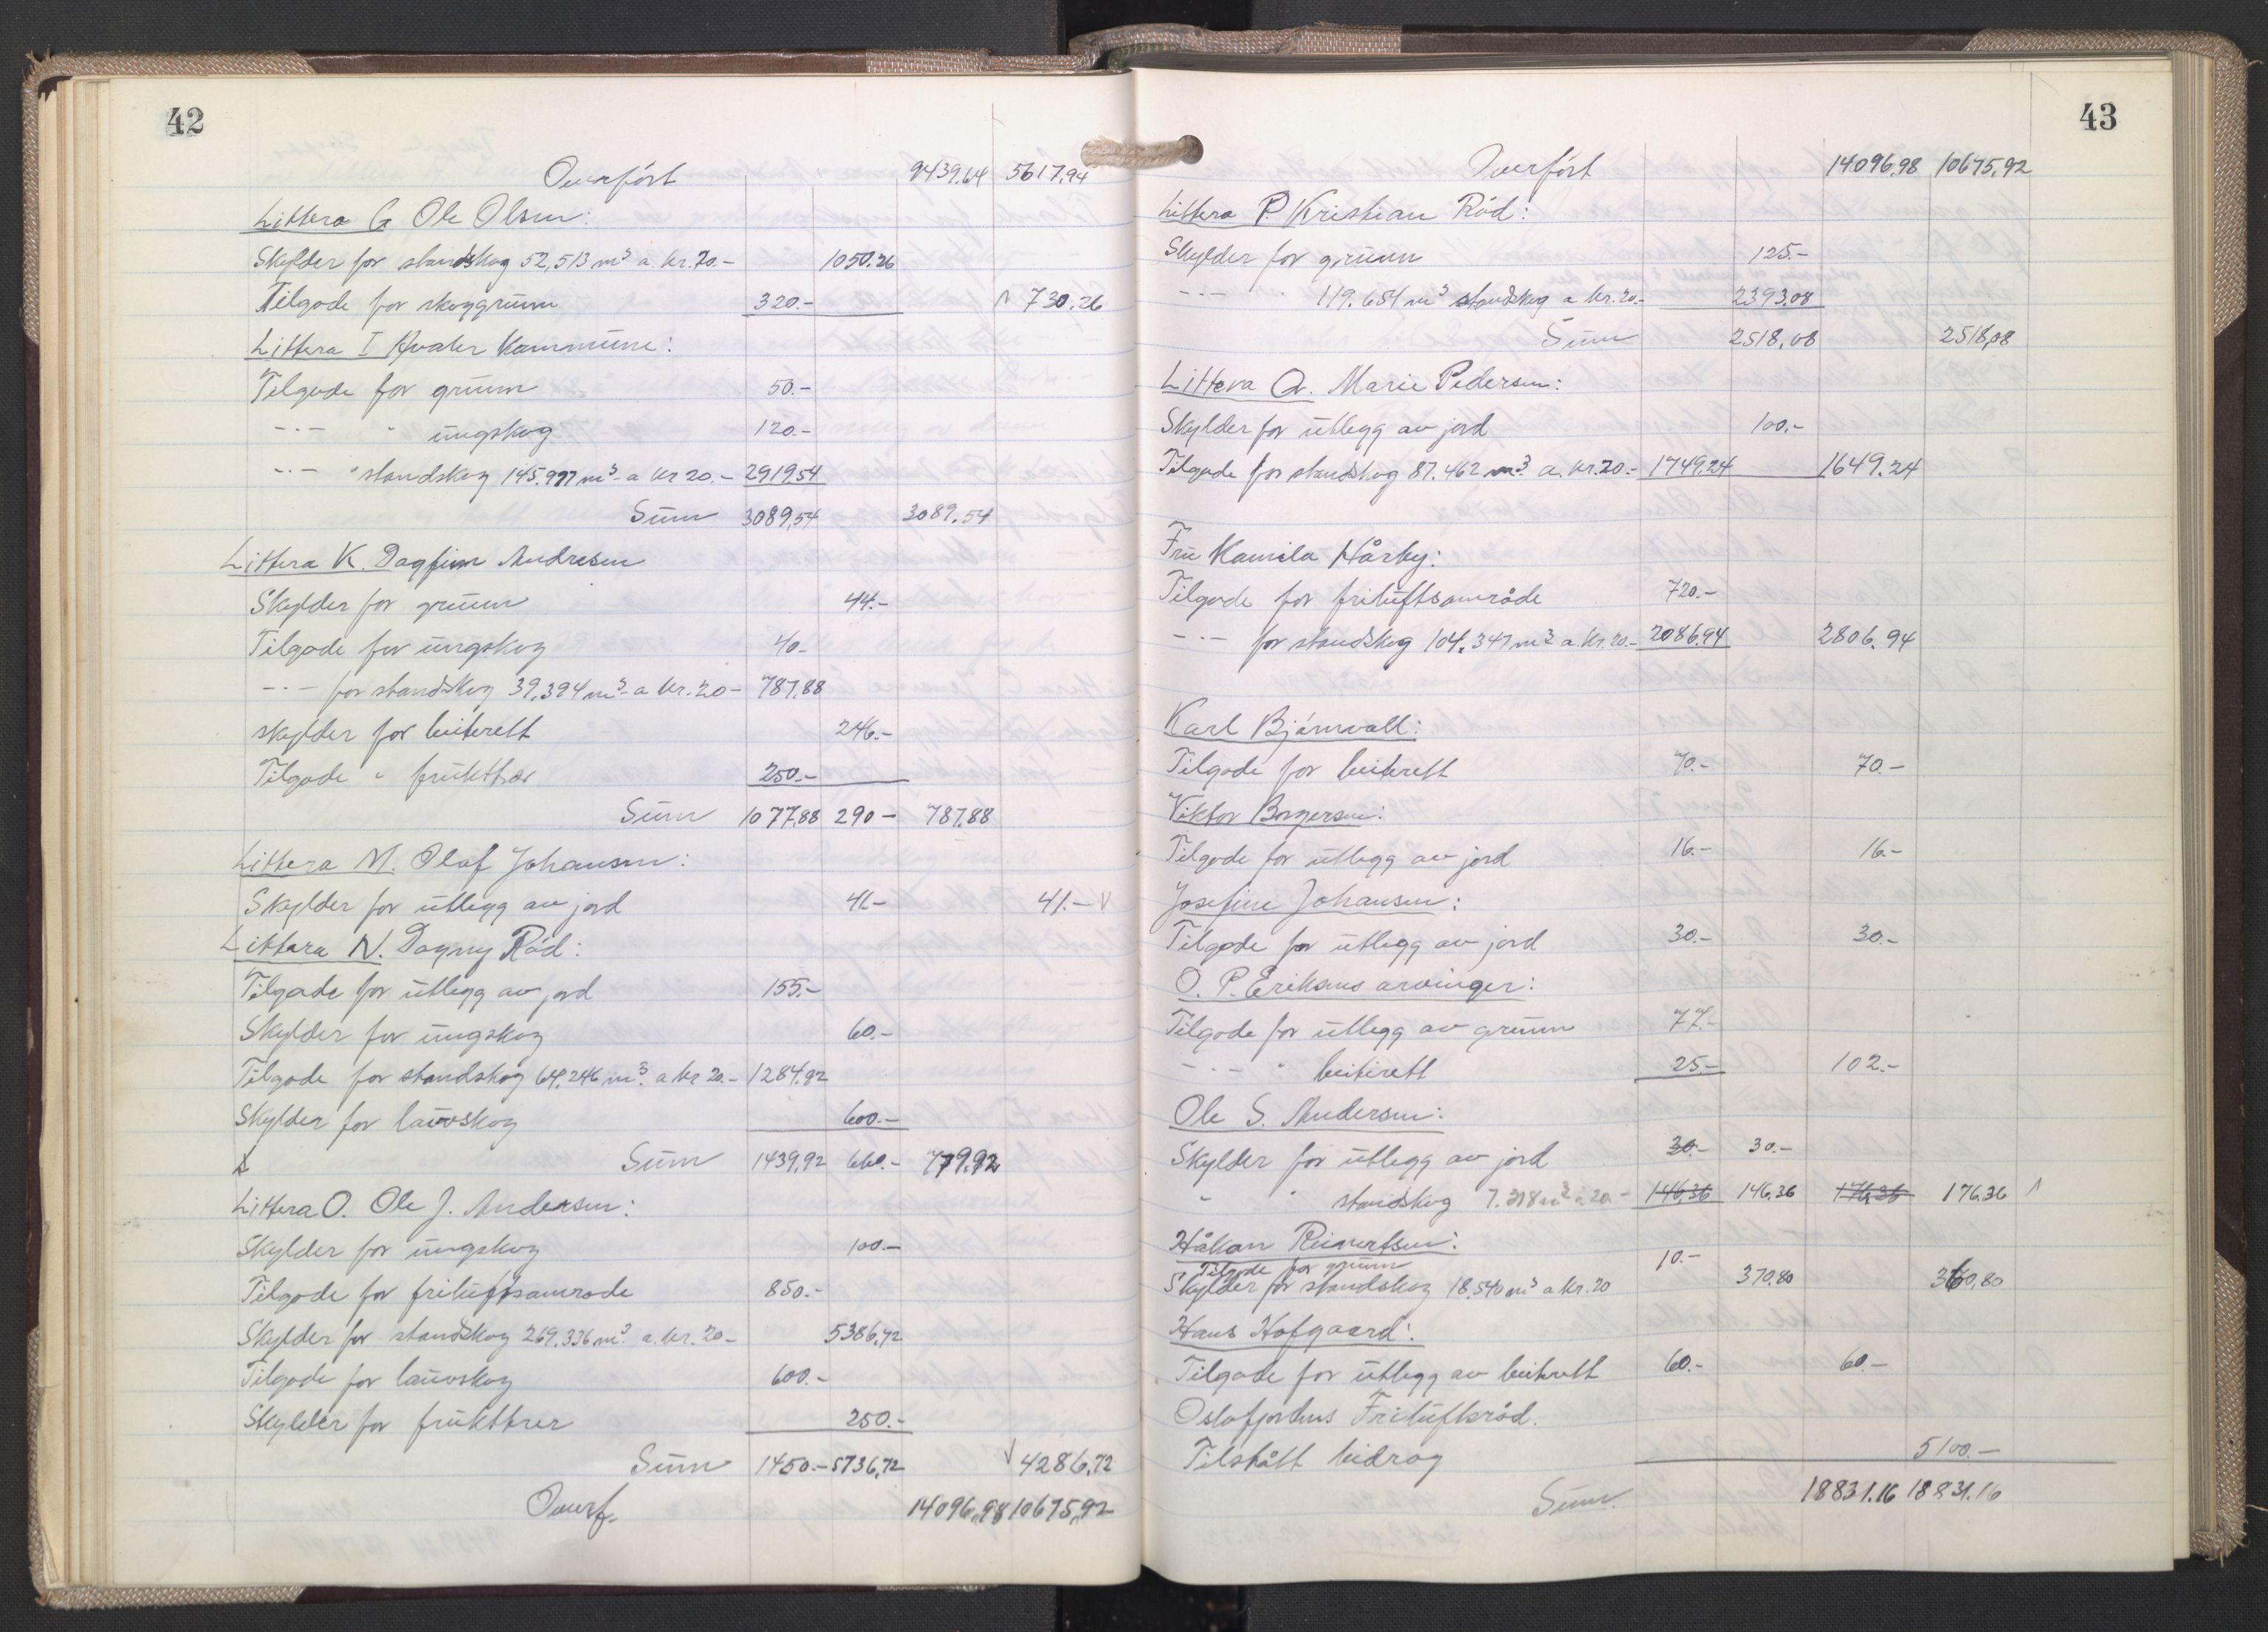 42
Overført 9439,64 5617,94
Littera G Ole Olsen:
Skylder for standskog 52,513 m³ a. kr. 20.- 1050.26
Tilgode for skoggrunn 320.- 730.26
Littera I Hvaler Kommune:
Tilgode for grunn 50.-
-"- " ungskog 120.-
-"- " standskog 145.977 m³ a kr 20.- 2919,54
Sum 3089,54 3089.54
Littera K. Dagfinn Andresen
Skylder for grunn 44.-
Tilgode for ungskog 40.-
-"- for standskog 39,394 m³ a kr. 20- 787,88
skylder for beiterett 246.-
Tilgode " frukttrær 250.-
Sum 1077,88 290- 787,88
Littera M. Olaf Johansen:
Skylder for utlegg av jord 41.- 41.-
Littara N. Dagny Rød:
Tilgode for utlegg av jord 155.-
Skylder for ungskog 60.-
Tilgode for standskog 64,246 m³ a kr 20.- 1284.92
Skylder for lauvskog 600.-
Sum 1439,92 660.- 779.92
Littera O. Ole J. Andersen:
Skylder for ungskog 100.-
Tilgode for friluftsamrode 850.-
Skylder for standskog 269,336 m³ a. kr. 20- 5386,72
Tilgode for lauvskog 600.-
Skylder for frukttrer 250.-
Sum 1450.- 5736,72 4286,72
Overf. 14096,98 10675,92
43
Overført 14096,98 10675,92
Littera P. Kristian Rød:
Skylder for grunn 125.-
-"- " 119.654 m³ standskog a kr. 20.- 2393,08
Sum 2518,08 2518,08
Littera Q. Marie Pedersen:
Skylder for utlegg av jord 100.-
Tilgode for standskog 87.462 m³ a. kr. 20.- 1749,24 1649.24
Fru Kamila Hårby:
Tilgode for friluftsområde 720.-
-"- for standskog 104.347 m³ a. kr. 20.- 2086,94 2806.94
Karl Bjørnvall:
Tilgode for beiterett 70.- 70.-
Viktor Borgersen:
Tilgode for utlegg av jord 16.- 16.-
Josefine Johansen:
Tilgode for utlegg av jord 30.- 30.-
O. P. Eriksens arvinger:
Tilgode for utlegg av grunn 77.-
-"- " beiterett 25.- 102.-
Ole S. Andersen:
Skylder for utlegg av jord 30.- 30.-
" " standskog 7.318 m³ a 20.- 146,36 146,36 176,36 176,36
Håkon Reinertsen:
Tilgode for grunn 10.-
Skylder for standskog 18,540 m³ a kr. 20 370,80 360,80
Hans Hofgaard:
Tilgode for utlegg av beiterett 60.- 60.-
Oslofjordens Friluftsråd.
Tilstått bidrag 5100.-
Sum. 18831.16 18831.16